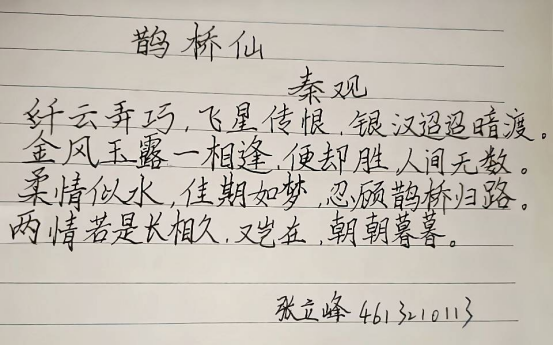 鹊桥仙
秦观
纤云弄巧,飞星传恨,银汉迢迢暗渡。
金风玉露一相逢,便却胜,人间无数。
柔情似水,佳期如梦,忍顾鹊桥归路。
两情若是长相久,又岂在,朝朝暮暮。
张立峰 4613210113